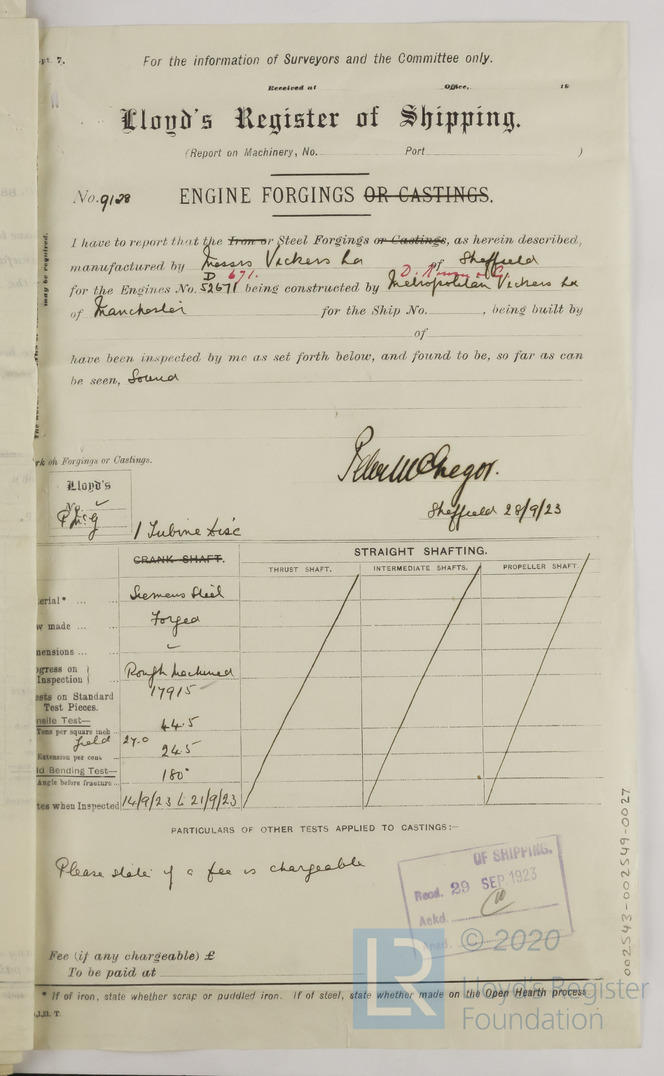 pt. 7.
For the information of Surveyors and the Committee only.
Received at Office, 19
Lloyd's Register of Shipping.
(Report on Machinery, No. Port )
No. 9128 ENGINE FORGINGS OR CASTINGS.
may be required.
I have to report that the Iron or Steel Forgings or Castings, as herein described,
manufactured by Messrs Vickers Ld of Sheffield
D 671.
for the Engines No. 52671 being constructed by Metropolitan Vickers Ld
of Manchester for the Ship No. , being built by
of
have been inspected by me as set forth below, and found to be, so far as can
be seen, Sound
Peter McGregor.
rk on Forgings or Castings.
Lloyd's
No.
P McG
Sheffield 28/9/23
1 Turbine Disc
CRANK SHAFT. STRAIGHT SHAFTING.
THRUST SHAFT. INTERMEDIATE SHAFTS. PROPELLER SHAFT.
erial* ... ... Siemens Steel
w made ... ... Forged
mensions ... ...
ogress on
Inspection Rough Machined
ests on Standard 17915
Test Pieces.
nsile Test— 44.5
Tons per square inch ...
Yield 27.0
Extension per cent ... 24.5
ld Bending Test— 180°
Angle before fracture ...
tes when Inspected 14/9/23 & 21/9/23
PARTICULARS OF OTHER TESTS APPLIED TO CASTINGS:—
Please state if a fee is chargeable
OF SHIPPING.
Recd. 29 SEP. 1923
Ackd.
Fee (if any chargeable) £
To be paid at
* If of iron, state whether scrap or puddled iron. If of steel, state whether made on the Open Hearth process
002543-002549-0027
LR
© 2020
Lloyd's Register
Foundation